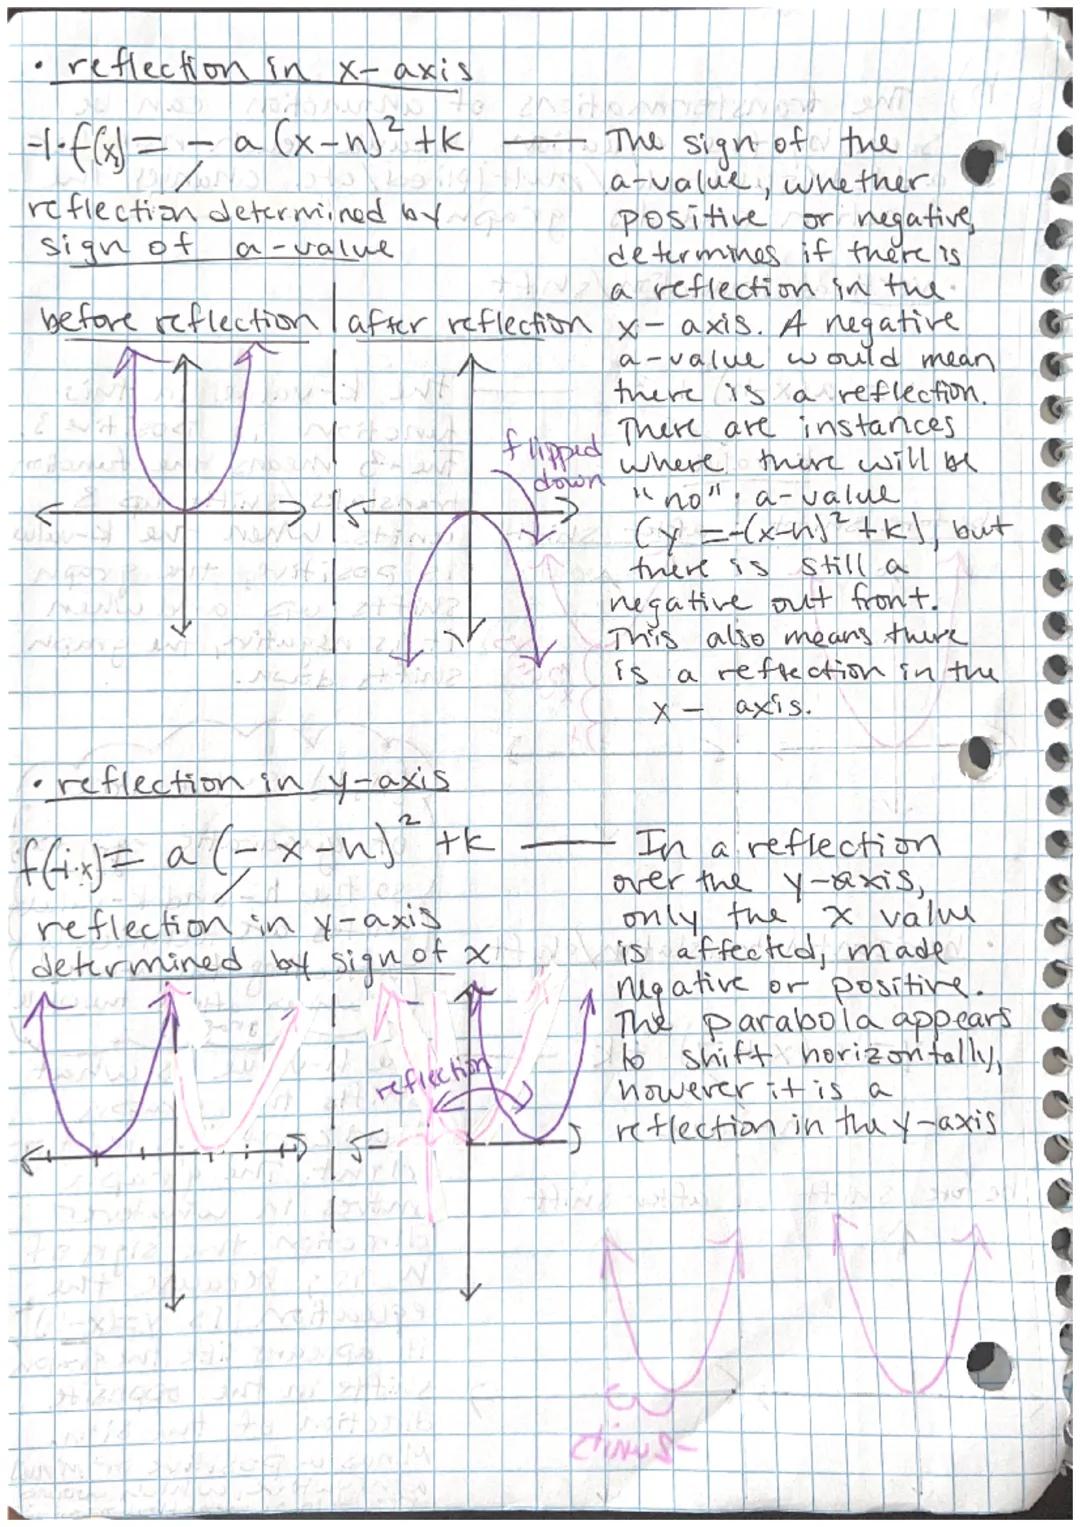 • reflection in x-axis
-1·f(x) = - a (x-h)² +k
reflection determined by
sign of a-value
The sign of the
a-value, whether
positive or negative,
determines if there is
a reflection in the
x- axis. A negative
a-value would mean
there is a reflection.
There are instances
where there will be
"no" a-value
(y =-(x-h)² +k), but
there is still a
negative out front.
This also means there
is a reflection in the
x - axis.
before reflection | after reflection
flipped
down
• reflection in y-axis
f(-1·x)= a (- x-h)² +k
reflection in y-axis
determined by sign of x
In a reflection
over the y-axis,
only the x value
is affected, made
negative or positive.
The parabola appears
to shift horizontally,
however it is a
reflection in the y-axis
reflection